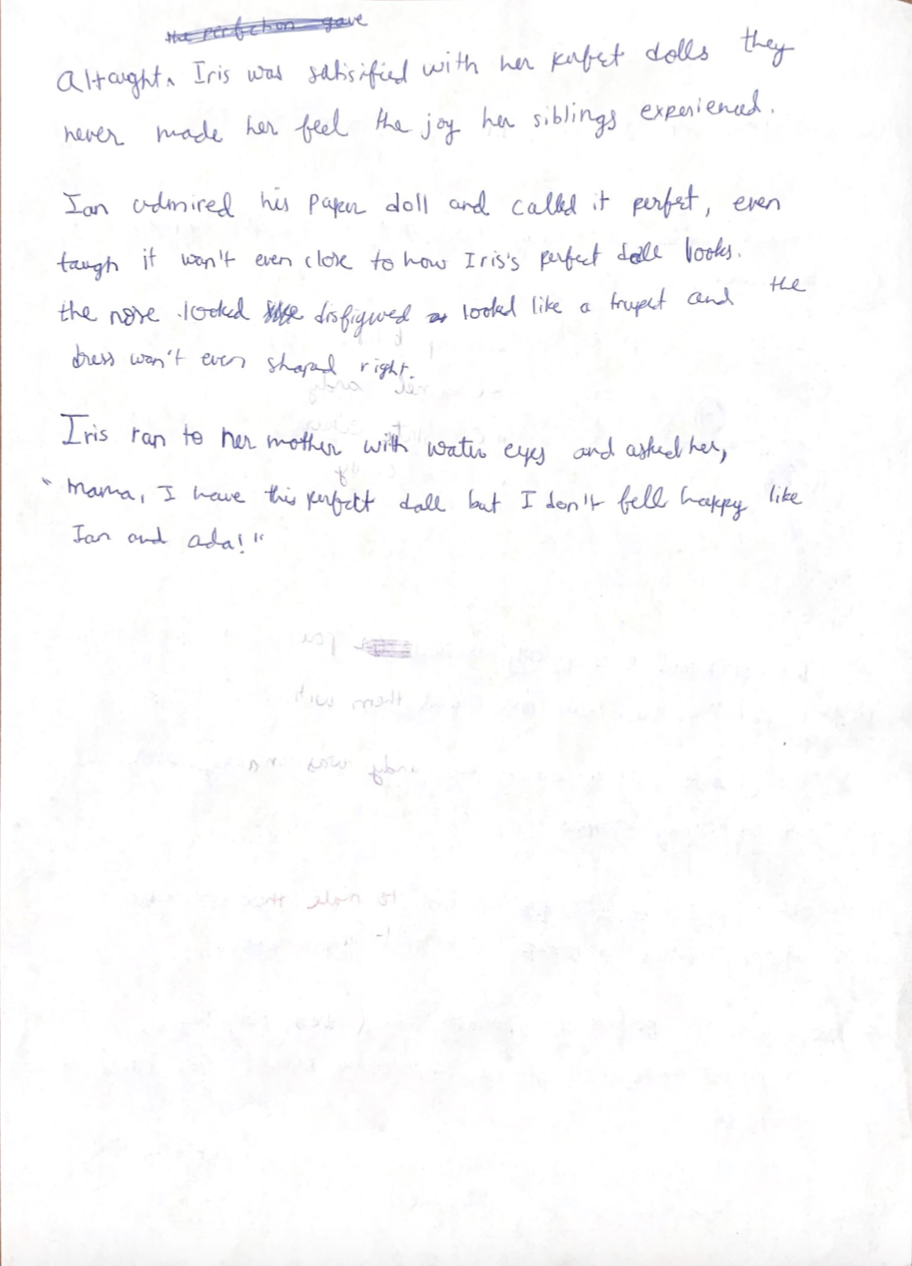 the perfection gave
Altaught Iris was satisified with her perfect dolls they
never made her feel the joy her siblings experienced.
Ian admired his paper doll and called it perfet, even
taugh it won't even close to how Iris's perfect doll looks.
the nose looked disfigured looked like a trupet and the
dress won't even shaped right.
Iris ran to her mother with water eyes and asked her,
"Mama, I have this perfect doll but I don't fell happy like
Ian and ada!"